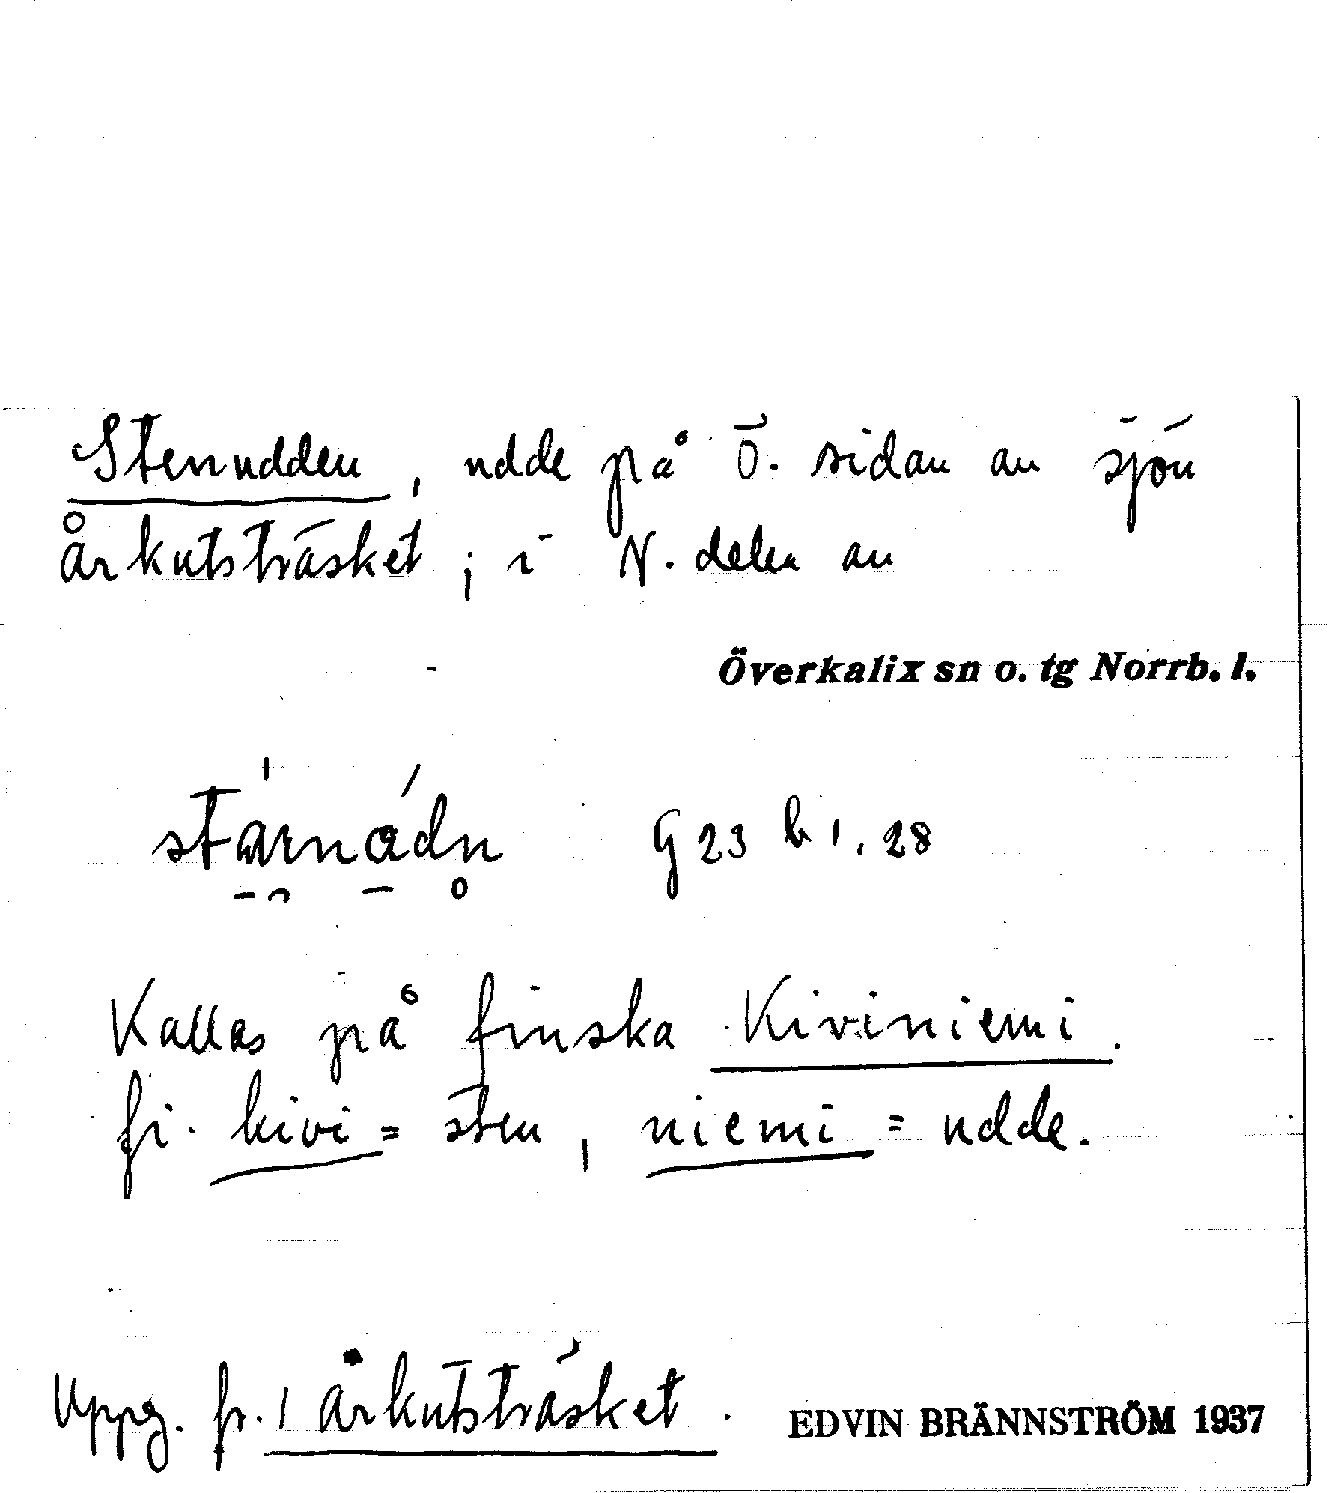 Stenudden, udde på Ö. sidan av sjön
Årkutsträsket; i N. delen av
Överkalix sn o. tg Norrb. l.
G 23 b 1. 28
Kallas på finska Kiviniemi.
fi. kivi = sten, niemi = udde.
Uppg. fr. 1 Årkutsträsket.
EDVIN BRÄNNSTRÖM 1937